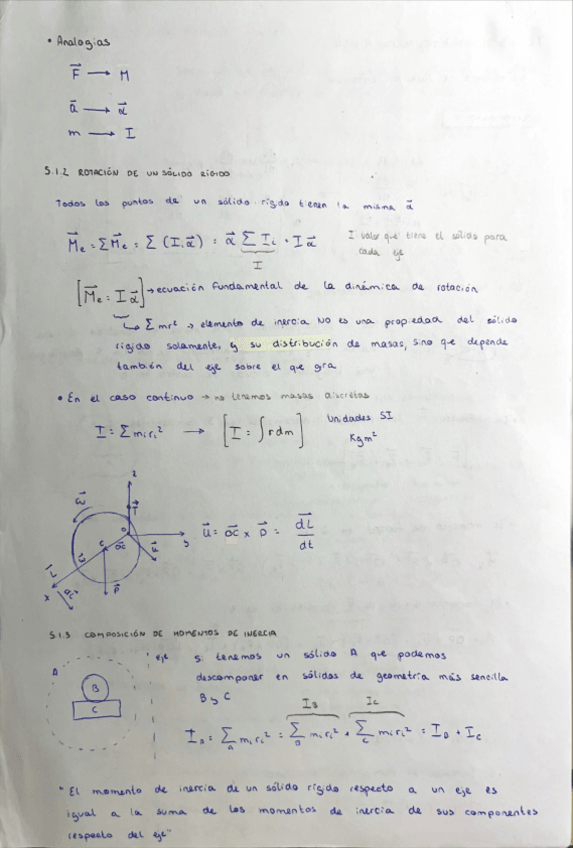 • Analogías
F → M
a → α
m → I
5.1.2 ROTACIÓN DE UN SÓLIDO RÍGIDO
Todos los puntos de un sólido rígido tienen la misma α
Me = ΣMe = Σ (Iᵢ α) = α Σ Iᵢ = I α
I
I valor que tiene el sólido para
cada eje
[Me = I α] → ecuación fundamental de la dinámica de rotación
↳ Σmr² → elemento de inercia NO es una propiedad del sólido
rígido solamente, y su distribución de masas, sino que depende
también del eje sobre el que gira
• En el caso continuo → no tenemos masas discretas
I = Σmᵢrᵢ² → [I = ∫rdm]
Unidades SI
Kgm²
z
ω
T
o
y
C
OC
P
x
L
u = OC x P = dL/dt
5.1.3 COMPOSICIÓN DE MOMENTOS DE INERCIA
A
eje
B
C
Si tenemos un sólido A que podemos
descomponer en sólidos de geometría más sencilla
B y C
I_B I_C
Σ mᵢrᵢ² = Σ mᵢrᵢ² + Σ mᵢrᵢ² = I_B + I_C
"El momento de inercia de un sólido rígido respecto a un eje es
igual a la suma de los momentos de inercia de sus componentes
respecto del eje"